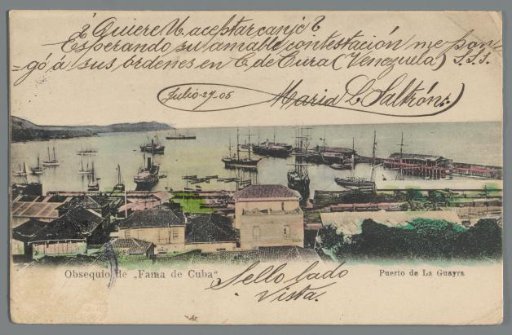 ¿Quiere U. aceptar canje?
Esperando su amable contestación me pon-
-gó á sus órdenes en C de Cura (Venezuela) S.S.S.
Julio-27-05
Maria L. Saltrón.
Obsequio de „Fama de Cuba“
Puerto de La Guayra
Sello lado
Vista.